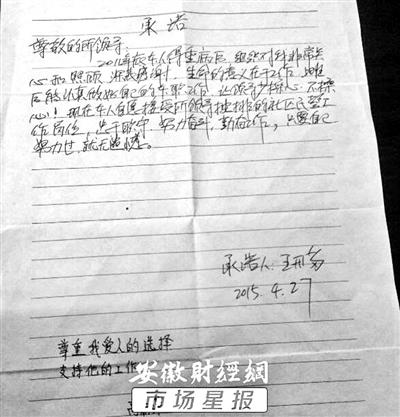 承诺
尊敬的所领导:
2011年我本人得重病后,组织对我非常关
心和照顾,深表感谢。生命的意义在于工作,上班
后能认真做好自己的本职工作,让领导少操心、不操
心!现在本人自愿接受所领导安排的社区民警工
作岗位,在于职守,努力奋斗,勤奋工作,只要自己
努力过,就无遗憾。
承诺人:王
2015.4.27
尊重我爱人的选择
支持他的工作
安徽财经網
市场星报